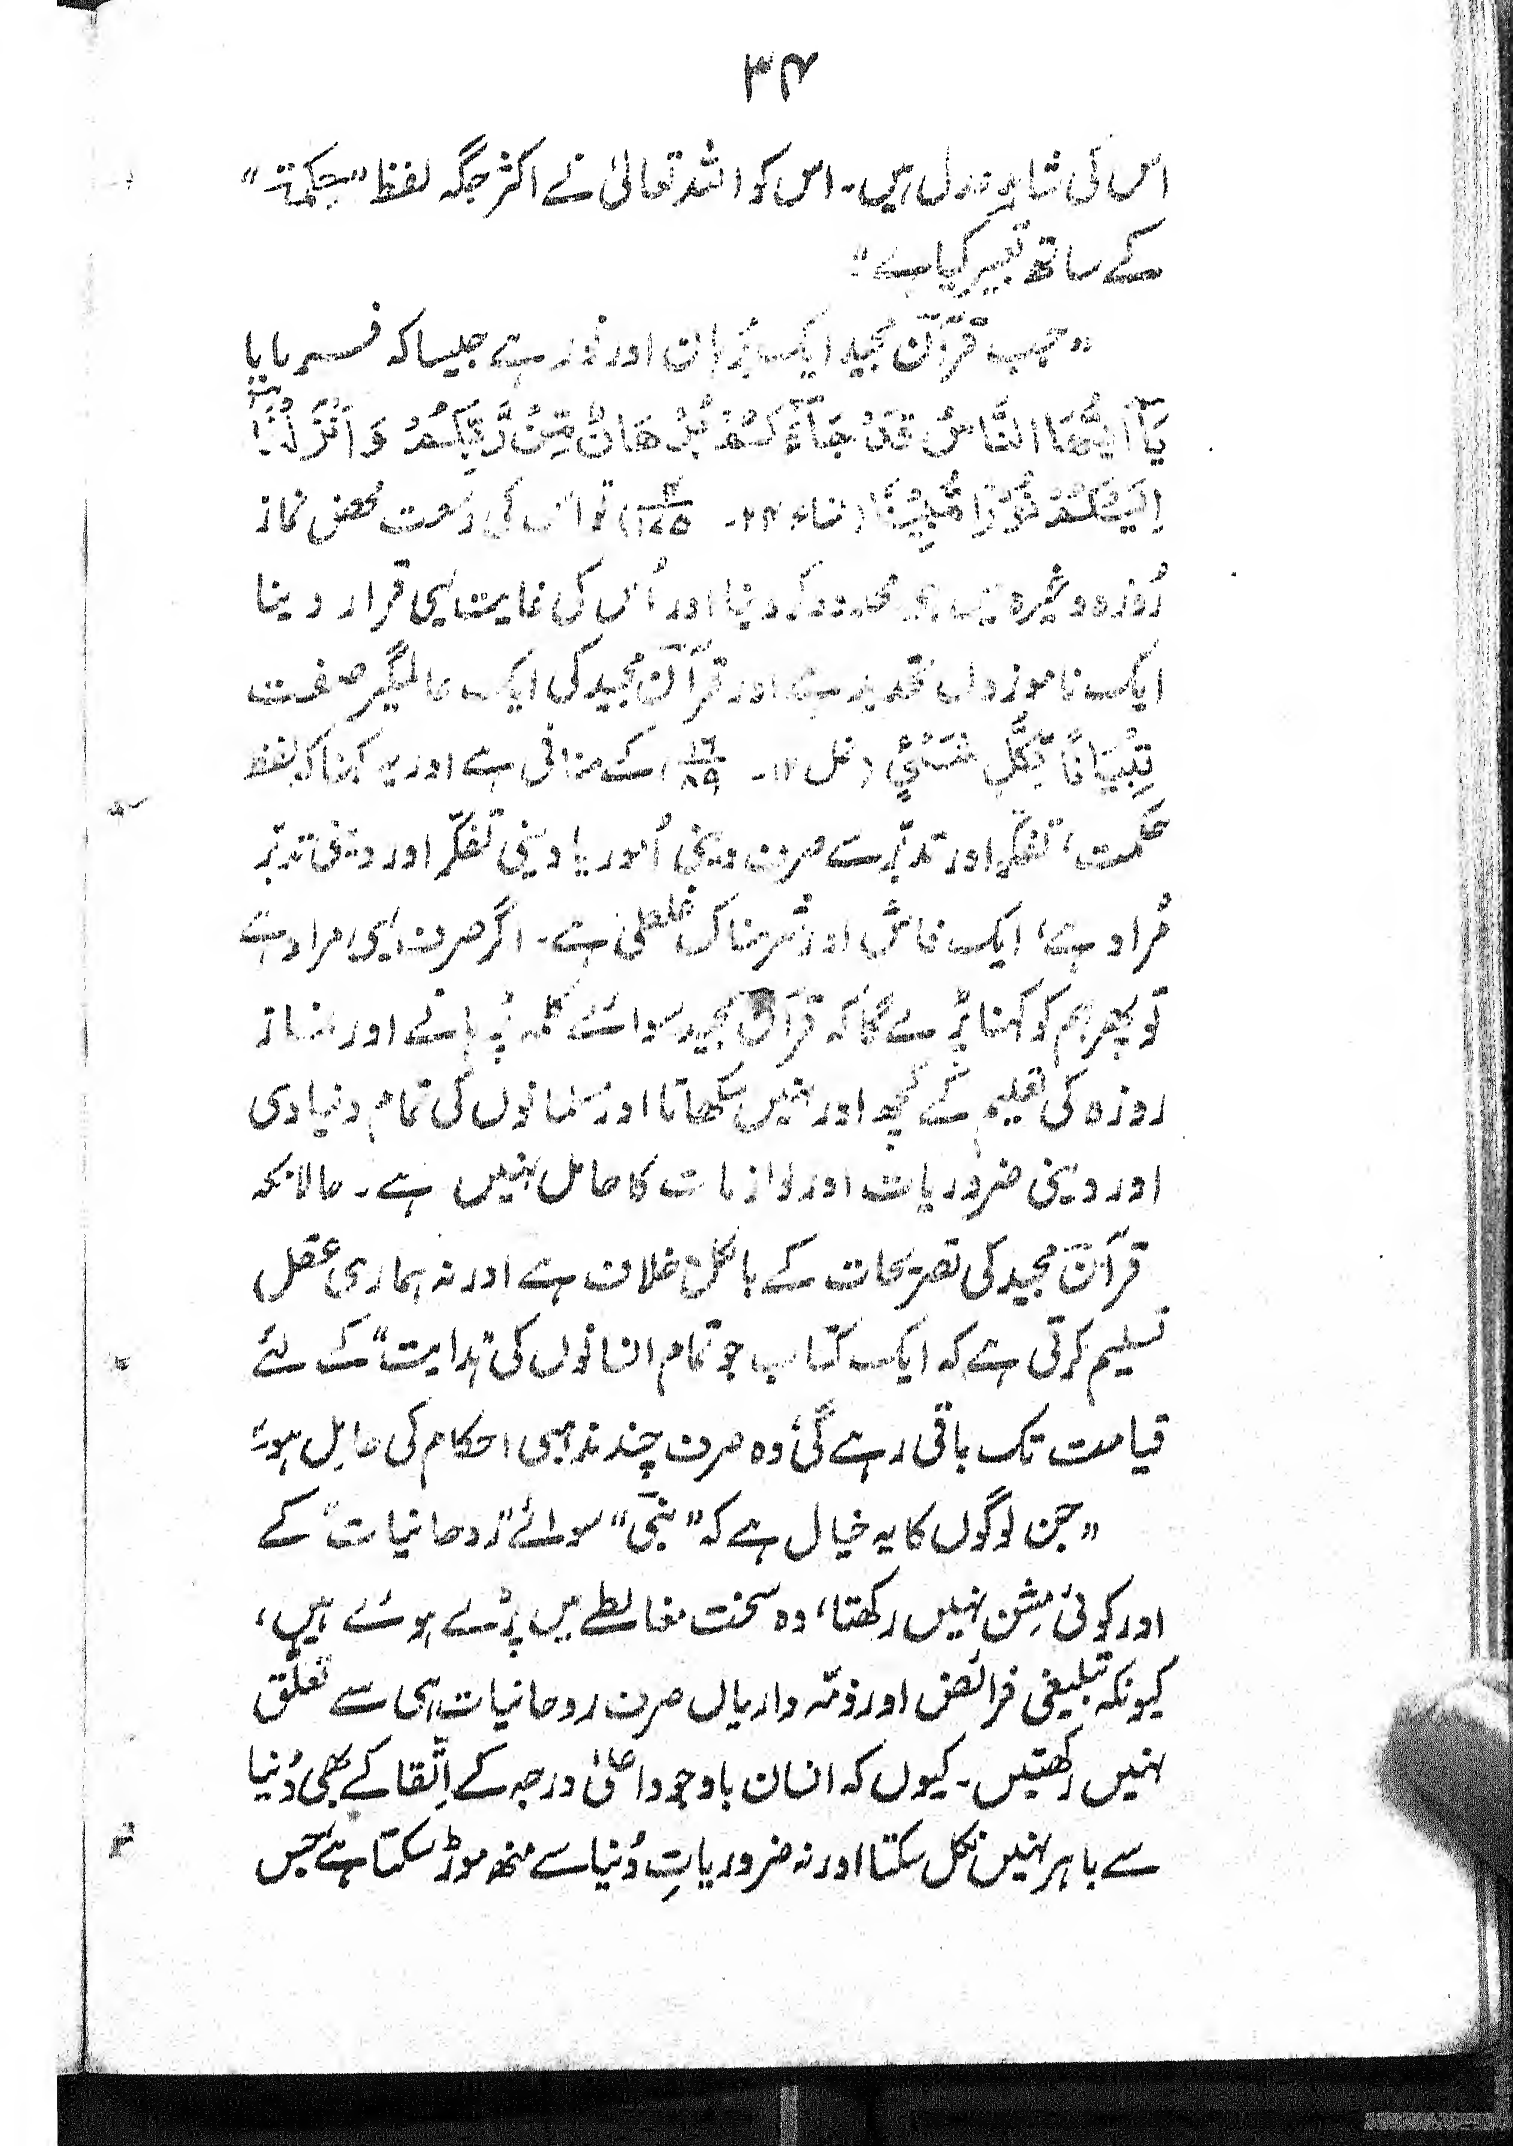 ۳۴
اس کی شاہدِ عدل ہیں۔ اس کو اللہ تعالیٰ نے اکثر جگہ لفظ "حِکمۃ"
کے ساتھ تعبیر کیا ہے"
"جب قرآن مجید ایک بُرہان اور نُور ہے جیسا کہ فرمایا
یٰٓاَیُّھَا النَّاسُ قَدْ جَآءَکُمْ بُرْھَانٌ مِّنْ رَّبِّکُمْ وَ اَنْزَلْنَا
اِلَیْکُمْ نُوْرًا مُّبِیْنًا (نساء ۲۴۔ ۴/۱۷۵) تو اس کی دعوت محض نماز
رُوزہ وغیرہ میں محدود کر دینا اور اُس کی غایت یہی قرار دینا
ایک ناموزوں تحدید ہے اور قرآن مجید کی ایک عالمگیر صفت
تِبْیَانًا لِّکُلِّ شَیْءٍ (نحل ۱۲۔ ۱۶/۸۹) کے منافی ہے اور یہ کہنا کہ لفظ
حکمت، تفکّر اور تدبّر سے صرف دینی اُمور یا دینی تفکّر اور دینی تدبّر
مُراد ہے، ایک فاش اور شرمناک غلطی ہے۔ اگر صرف یہی مراد ہے
تو پھر ہم کو کہنا پڑے گا کہ قرآن مجید سوائے کلمہ پڑھانے اور نماز
روزہ کی تعلیم کے کچھ اور نہیں سکھاتا اور مسلمانوں کی تمام دنیاوی
اور دینی ضروریات اور لوازمات کا حامل نہیں ہے۔ حالانکہ
قرآن مجید کی تصریحات کے بالکل خلاف ہے اور نہ ہماری عقل
تسلیم کرتی ہے کہ ایک کتاب جو تمام انسانوں کی "ہدایت" کے لئے
قیامت تک باقی رہے گی، وہ صرف چند مذہبی احکام کی حامِل ہو۔
"جن لوگوں کا یہ خیال ہے کہ "نبی" سوائے "روحانیات" کے
اور کوئی مِشن نہیں رکھتا، وہ سخت مغالطے میں پڑے ہوئے ہیں،
کیونکہ تبلیغی فرائض اور ذمّہ داریاں صرف روحانیات ہی سے تعلّق
نہیں رکھتیں۔ کیوں کہ انسان باوجود اعلیٰ درجہ کے اِتّقا کے بھی دُنیا
سے باہر نہیں نکل سکتا اور نہ ضروریاتِ دُنیا سے منھ موڑ سکتا ہے جس